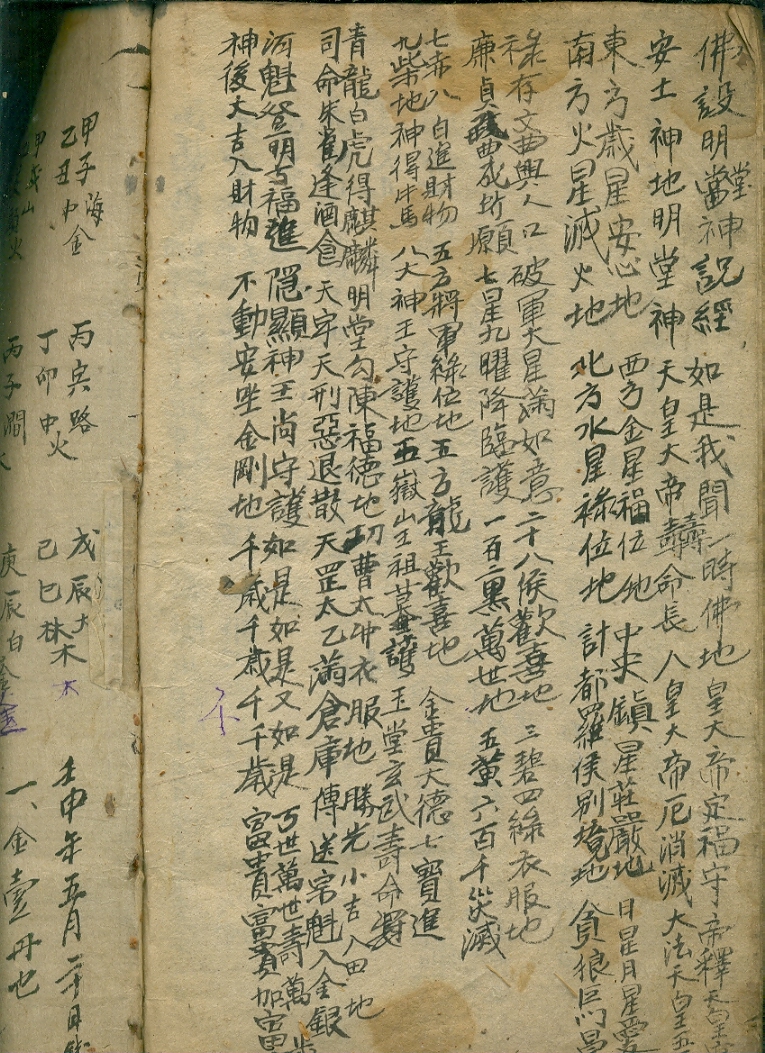 佛設明當堂神説經 如是我聞一時佛地皇大帝定福守帝釋
安土神地明堂神 天皇大帝壽命長人皇大帝厄消滅大法天皇
東方歲星安心地 西方金星福位地 中央鎭星莊嚴地 日星月星
南方火星滅火地 北方水星祿位地 計都羅侯別境地 貪狼巨门
祿存文曲興人口 破軍大星滿如意 二十八侯歡喜地 三碧四綠衣服地
廉貞武曲成所願 七星九曜降臨護 一百二黒萬世地 五黃六百千災滅
七赤八白進財物 五方將軍綠位地 五方龍王歡喜地 金貴大德七寶進
九紫地神得牛馬 八大神王守護地 五嶽山王祖墓護 玉堂玄武壽命
青龍白虎得麒麟 明堂勾陳福德地 功曹太冲衣服地 勝光小吉入田地
司命朱雀逢酒食 天牢天刑惡退散 天罡太乙滿倉庫 傳送宗魁入金銀
河魁登明百福進 隱顯神王尚守護 如是如是又如是 万世萬世壽萬
神後大吉入財物 不動安坐金剛地 千歲千歲千千歲 富貴富貴加富
不
甲子海 丙寅路 戊辰大 壬申年五月二十日
乙丑中金 丁卯中火 己巳林木 木 一、金壹丹也
甲戌山 丙子澗 庚辰白